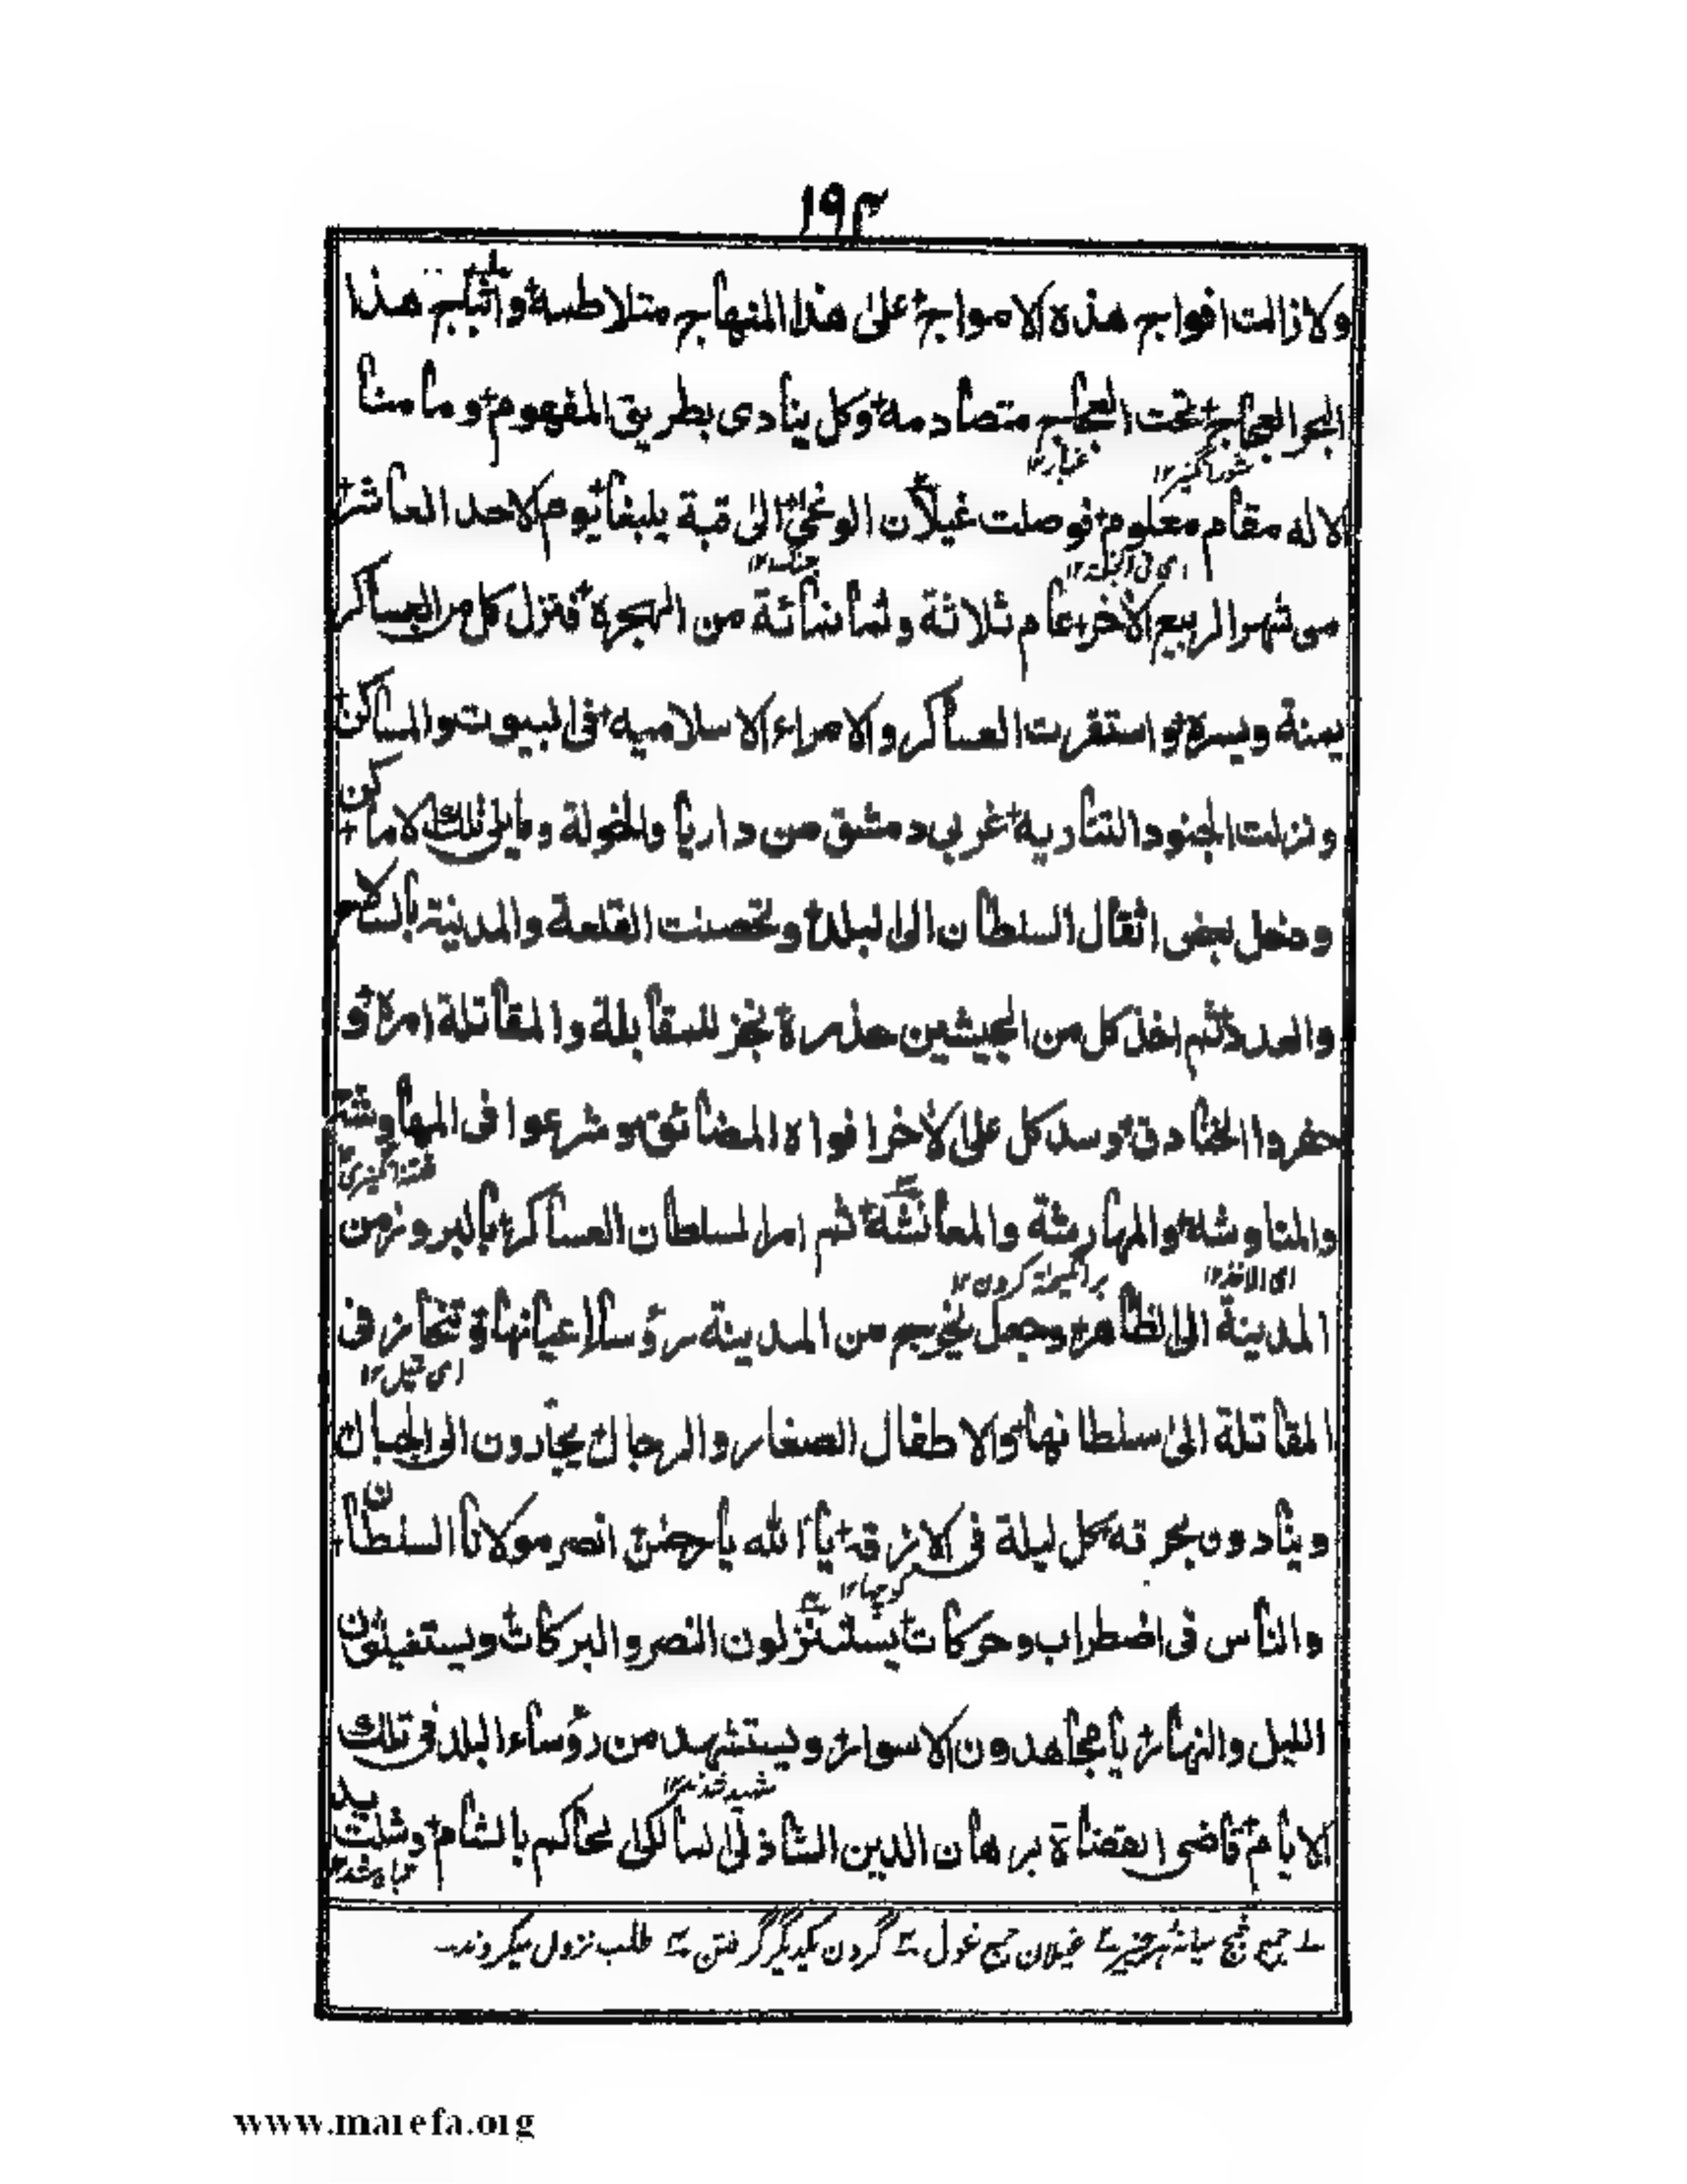 ١٩٣
ولازالت افواج هذه الامواج على هذا المنهاج متلاطمة واثباج هذا
البحر العجاج تحت العجاج متصادمة وكل ينادى بطريق المفهوم وما منا
غبار١٢ شور انگيز١٢
الا له مقام معلوم فوصلت غيلان الوغى الى قبة يلبغا يوم الاحد العاشر
جنگ١٢
من شهر الربيع الاخر عام ثلاثة وثمانمائة من الهجرة فنزل كل من العساكر
يمنة ويسرة واستقرت العساكر والامراء الاسلاميه فى البيوت والمساكن
ونزلت الجنود التتاريه غربى دمشق من داريا والخولة وما يلى تلك الاماكن
ودخل بعض اثقال السلطان الى البلد وتحصنت القلعة والمدينة بالسلاح
والعدد ثم اخذ كل من الجيشين حذره نجز للمقابلة والمقاتلة امره و
حفروا الخنادق وسد كل على الاخر افواه المضائق وشرعوا فى المهاوشة
فتنه انگيزى
والمناوشه والمهارشة والمعانشة ثم امر السلطان العساكر بالبروز من
بر انگيخته كردن١٢
المدينة الى الظاهر وجعل يخرج من المدينة رؤسا اعيانها وتنحاز فى
المقاتلة الى سلطانها والاطفال الصغار والرجال يجأرون الى الجبار
وينادون بحرقه كل ليلة فى الازقه يا الله يا رحمن انصر مولانا السلطان
كوچها١٢
والناس فى اضطراب وحركات يستنزلون النصر والبركات ويستغيثون
الليل والنهار يا مجاهدون الاسوار ويستشهد من رؤساء البلد فى تلك
شهيد شدند١٢
الايام قاضى القضاة برهان الدين الشاذلى المالكى الحاكم بالشام وشلت يد
تباه شد
جمع ثبج ميانه هر چيز غيلان جمع غول گردن يكديگر گرفتن طلب نزول ميكردند
www.marefa.org